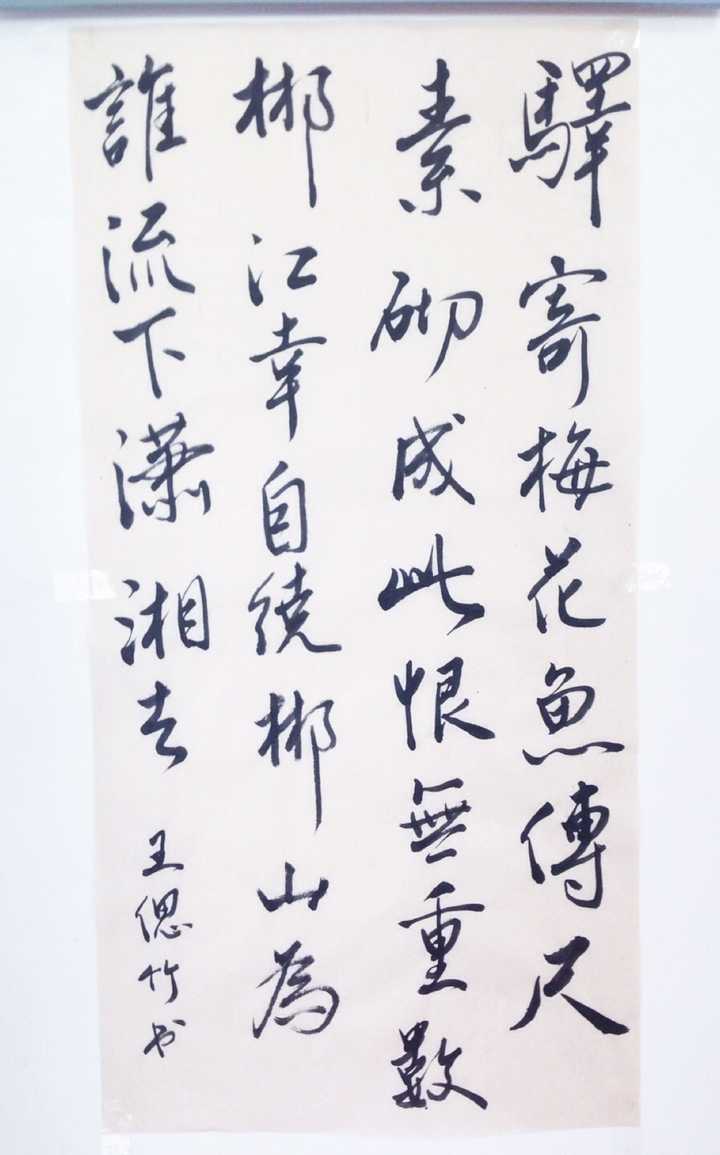 驛寄梅花魚傳尺
素砌成此恨無重數
郴江幸自繞郴山為
誰流下瀟湘去
王偲竹书